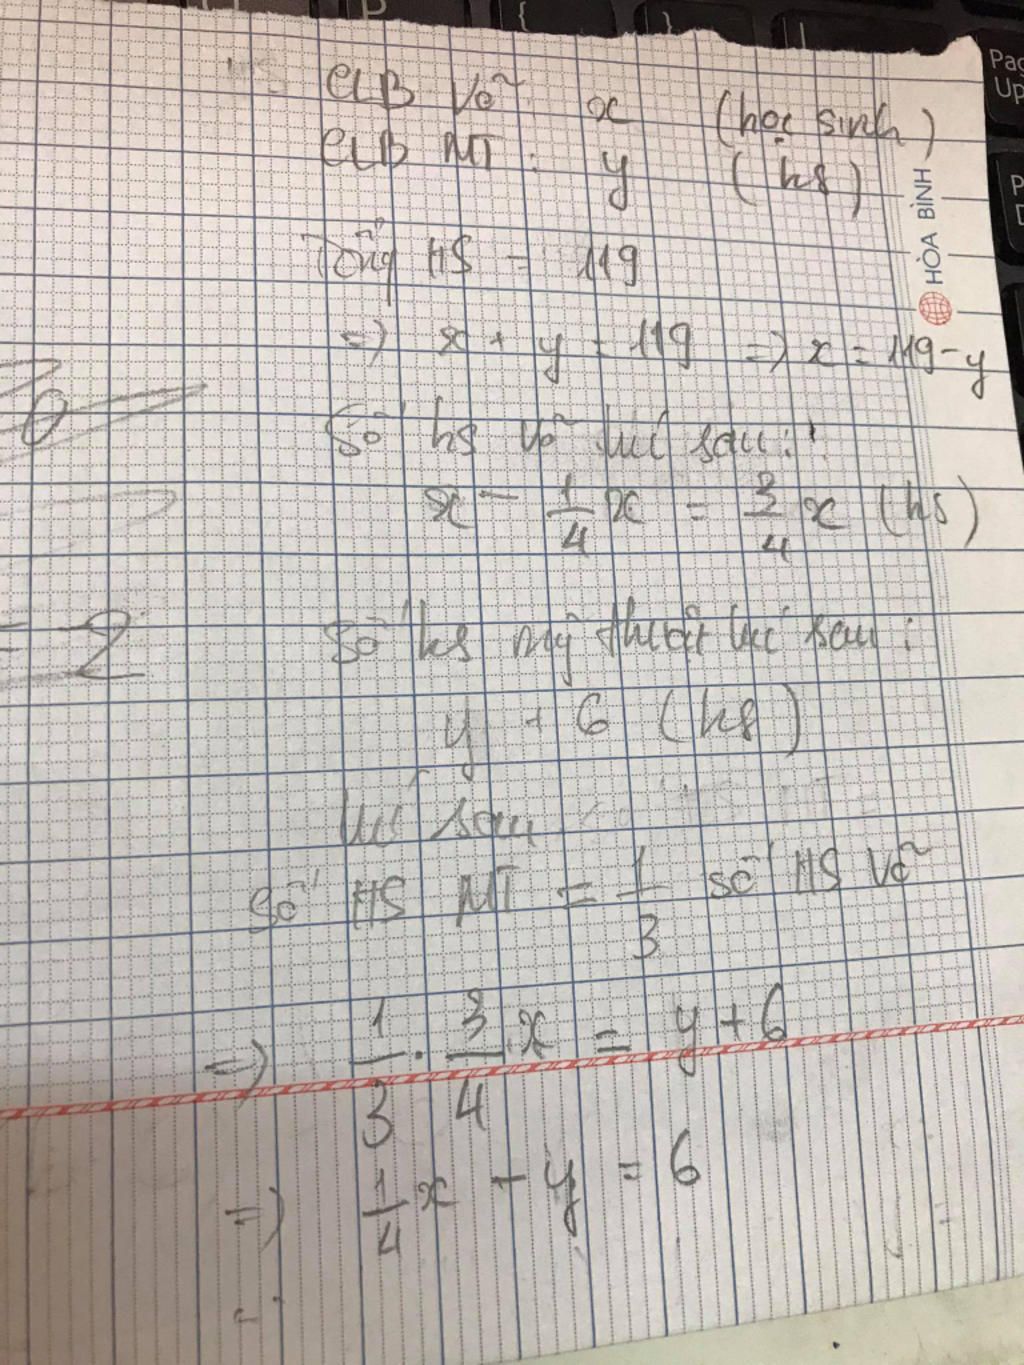 CLB Võ: x (học sinh)
CLB MT: y (hs)
HÒA BÌNH
Tổng HS = 119
=> x + y = 119 => x = 119 - y
Số hs võ lúc sau:
x - 1/4 x = 3/4 x (hs)
Số hs mỹ thuật lúc sau:
y + 6 (hs)
lúc sau
Số HS MT = 1/3 số HS Võ
=> 1/3 . 3/4 x = y + 6
=> 1/4 x - y = 6
= 2
Page
Up